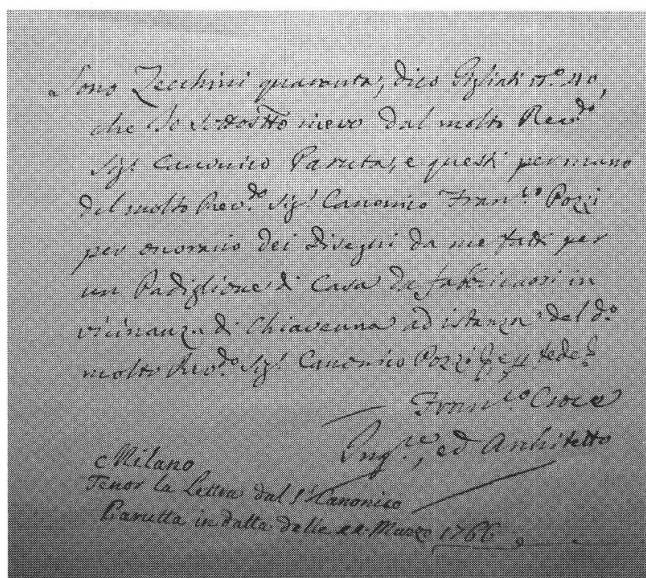 Sono Zecchini quaranta, dico Gigliati n.º 40,
che Io sottostto ricevo dal molto Revdo
Sigr Canonico Paruta, e questi per mano
del molto Revdo Sigr Canonico Franco Pozzi
per onorario dei disegni da me fatti per
un Padiglione di Casa da fabbricarsi in
vicinanza di Chiavenna ad istanza del do
molto Revdo Sigr Canonico Pozzi fede
Franco Croce
Ingre, ed Architetto
Milano
Tenor la Lettra dal Sr Canonico
Parutta in datta delle Marzo 1766